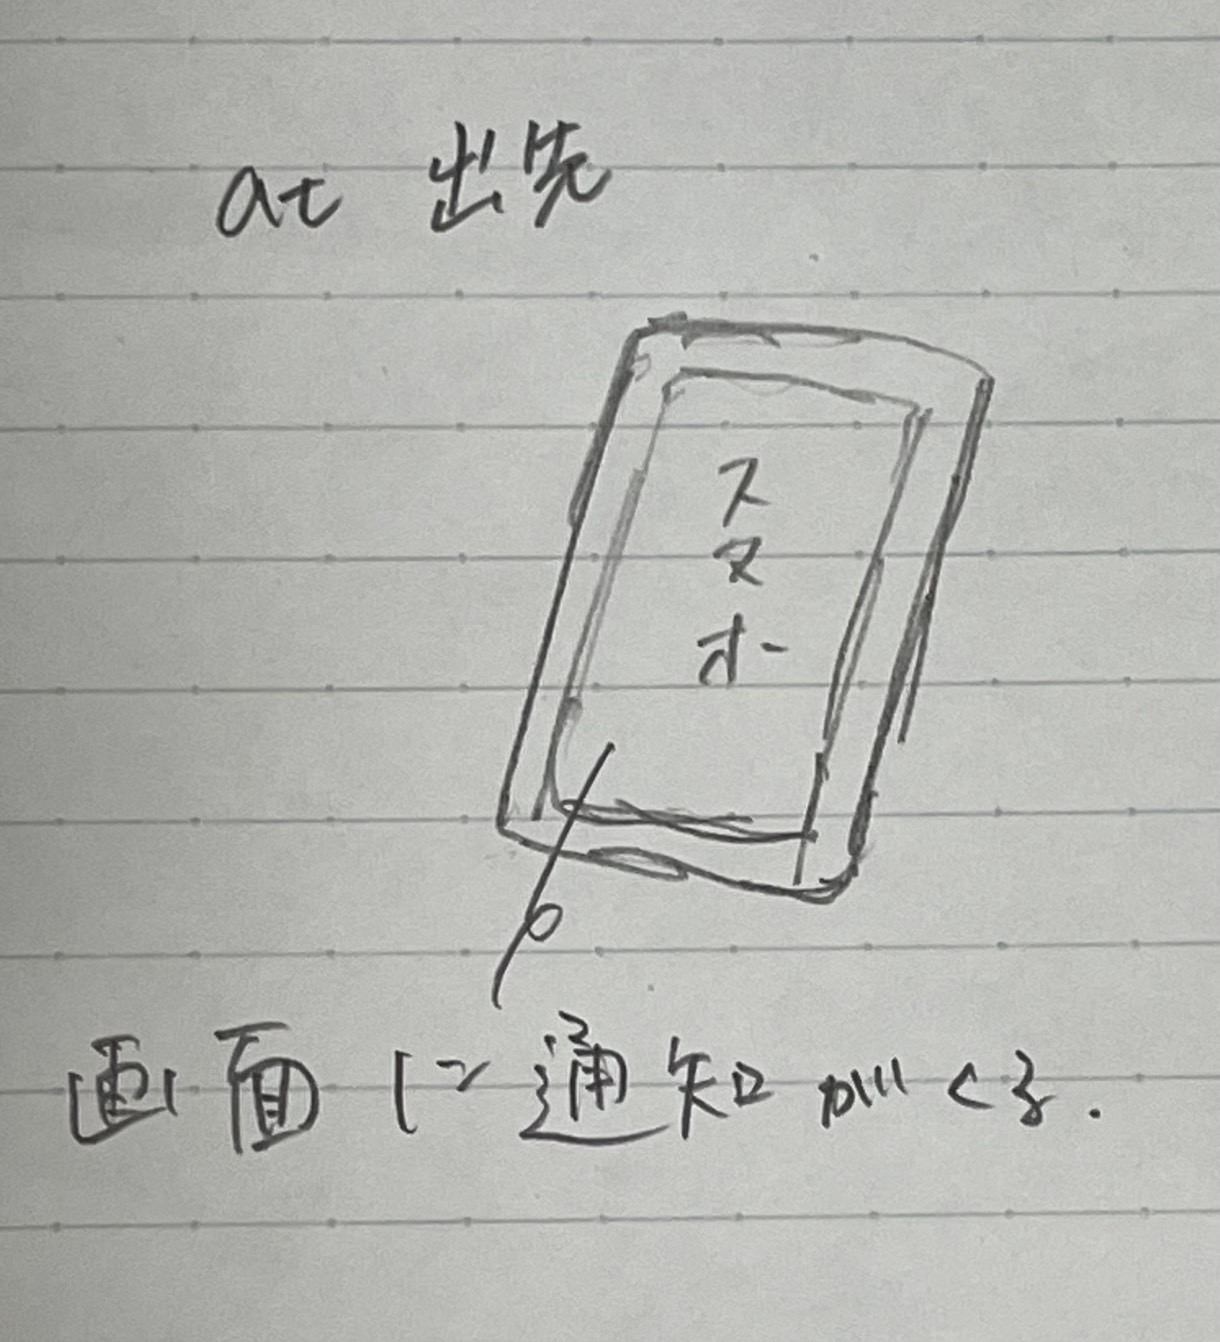 at 出先
スマホ
画面に通知がくる.